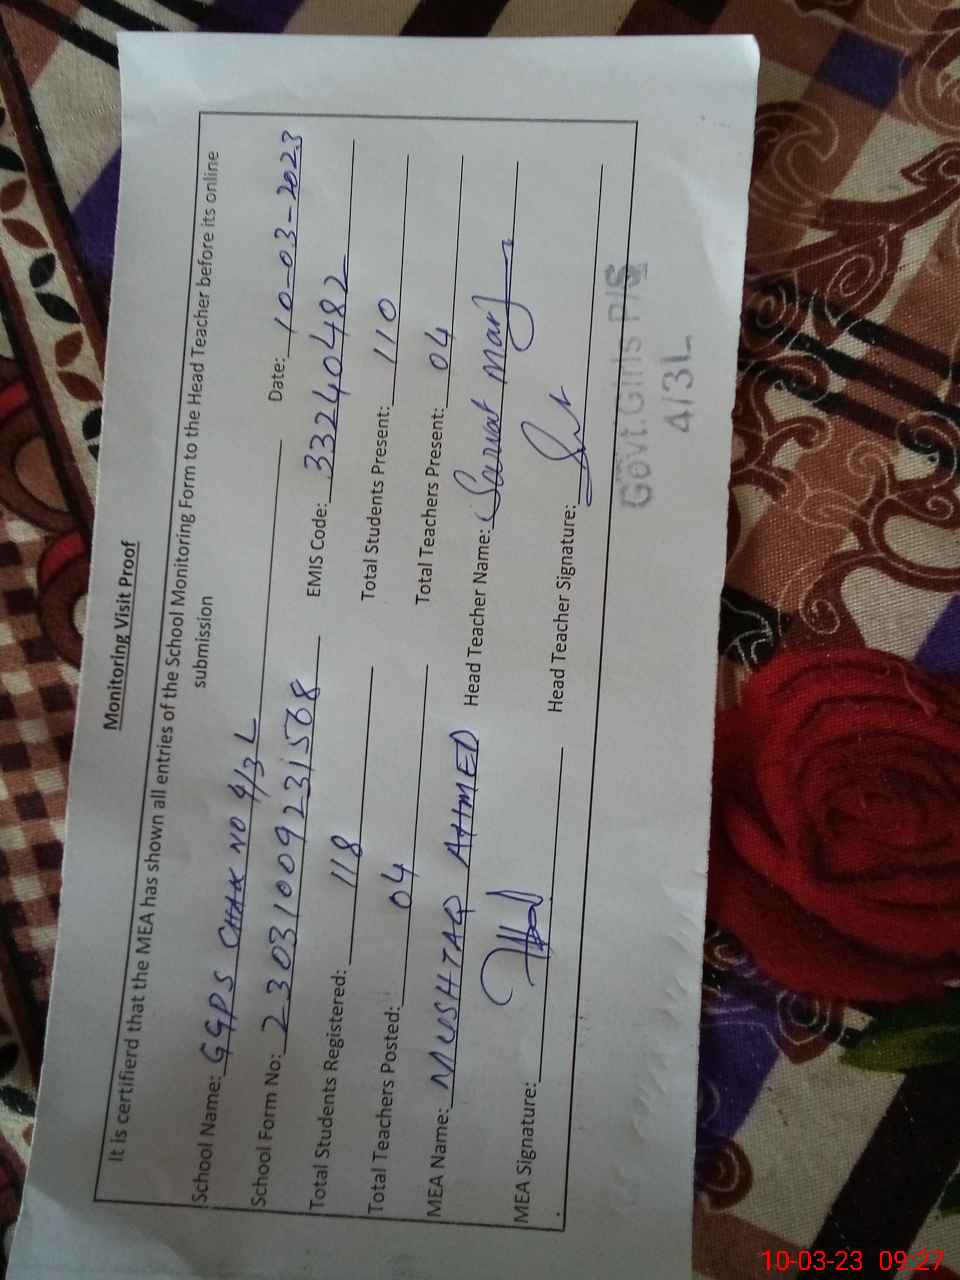 Monitoring Visit Proof
It is certifierd that the MEA has shown all entries of the School Monitoring Form to the Head Teacher before its online
submission
School Name: GGPS CHAK NO 4/3L Date: 10-03-2023
School Form No: 23031009231568 EMIS Code: 33240482
Total Students Registered: 118 Total Students Present: 110
Total Teachers Posted: 04 Total Teachers Present: 04
MEA Name: MUSHTAQ AHMED Head Teacher Name: Sarwat
MEA Signature: Head Teacher Signature:
Govt. Girls P/S
4/3L
10-03-23 09:27